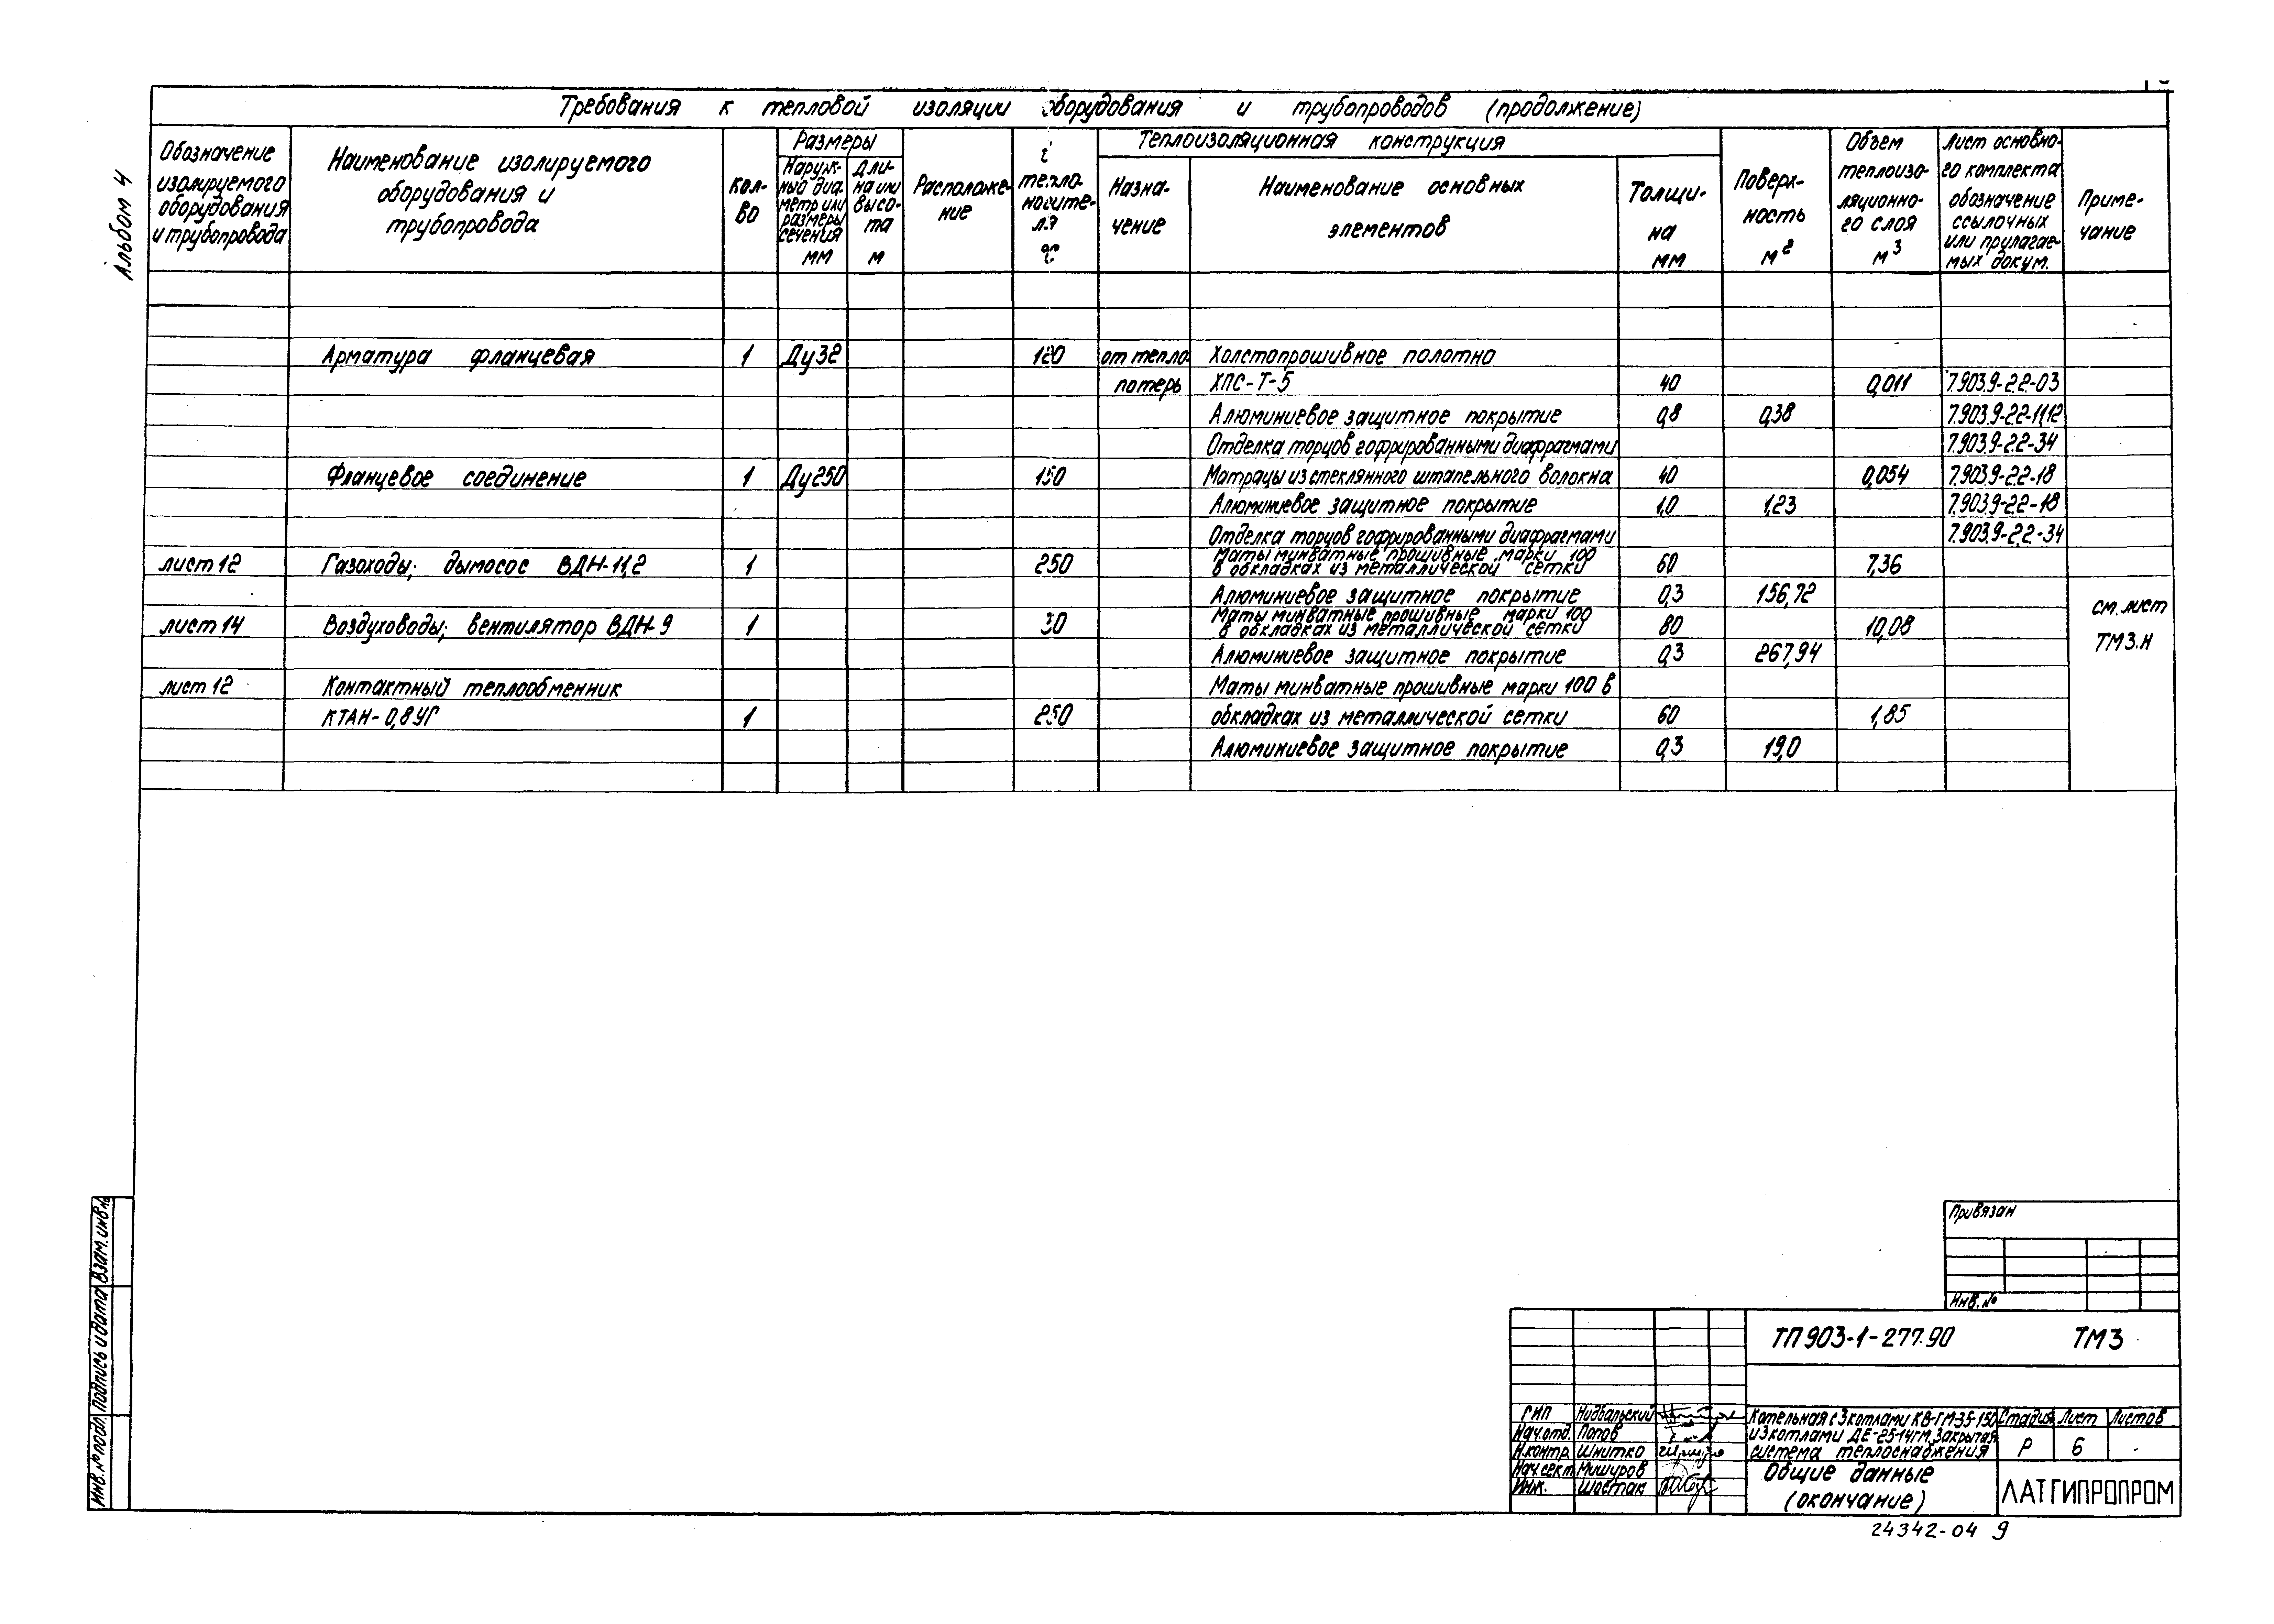 Альбом 4
Требования к тепловой изоляции оборудования и трубопроводов (продолжение)
Обозначение изолируемого оборудования и трубопровода
Наименование изолируемого оборудования и трубопровода
Кол-во
Размеры
Наруж-ный диа-метр или размеры сечения мм
Дли-на или высо-та м
Расположе-ние
t тепло-носите-ля °С
Теплоизоляционная конструкция
Назна-чение
Наименование основных элементов
Толщи-на мм
Поверх-ность м2
Объем теплоизо-ляционно-го слоя м3
Лист основно-го комплекта обозначение ссылочных или прилагае-мых докум.
Приме-чание
Арматура фланцевая 1 Ду32 120 от тепло- Холстопрошивное полотно
потерь ХПС-Т-5 40 0,011 7.903.9-2.2-03
Алюминиевое защитное покрытие 0,8 0,38 7.903.9-2.2-11,12
Отделка торцов гофрированными диафрагмами 7.903.9-2.2-34
Фланцевое соединение 1 Ду250 150 Матрацы из стеклянного штапельного волокна 40 0,054 7.903.9-2.2-18
Алюминиевое защитное покрытие 1,0 1,23 7.903.9-2.2-18
Отделка торцов гофрированными диафрагмами 7.903.9-2.2-34
лист 12 Газоходы; дымосос ВДН-11,2 1 250 Маты минватные прошивные марки 100 в обкладках из металлической сетки 60 7,36
Алюминиевое защитное покрытие 0,3 156,72
лист 14 Воздуховоды; вентилятор ВДН-9 1 30 Маты минватные прошивные марки 100 в обкладках из металлической сетки 80 10,08
см. лист
ТМ3.Н
Алюминиевое защитное покрытие 0,3 267,94
лист 12 Контактный теплообменник Маты минватные прошивные марки 100 в
КТАН-0,8УГ 1 250 обкладках из металлической сетки 60 1,85
Алюминиевое защитное покрытие 0,3 19,0
Взам. инв. №
Подпись и дата
Инв. № подл.
Привязан
Инв. №
ТП 903-1-277.90 ТМ3
ГИП Нидбальский
Нач.отд. Попов
Н.контр. Шнитко
Нач.сект. Мишуров
Инж. Шостак
Котельная с 3 котлами КВ-ГМ-35-150
и 3 котлами ДЕ-25-14ГМ. Закрытая
система теплоснабжения
Стадия Лист Листов
Р 6 -
Общие данные
(окончание)
ЛАТГИПРОПРОМ
24342-04 9